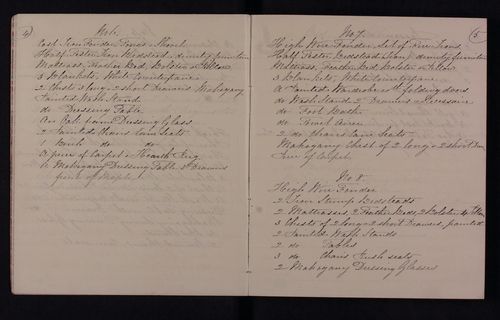 4)
No 6.
Cast Iron Fender, Tongs & Shovel
Half Tester Iron Bedstead & dimity furniture
Mattrass, Feather Bed, Bolster & Pillow
3 Blankets, White Counterpane
2 Chests 3 long & 2 short Drawers Mahogany
Painted Wash Stand
do Dressing Table
An Oak frame Dressing Glass
2 Painted Chairs Cane Seats
1 Birch do do
A piece of Carpet & Hearth Rug
A Mahogany Dressing Table 2 Drawers
front of Maple
(5
No 7.
High Wire Fender, Set of Fire Irons
Half Tester Bedstead Iron & dimity furniture
Mattrass, Feather Bed, Bolster & Pillow
3 Blankets, White Counterpane
A Painted Wardrobe with folding doors
do Wash Stand 2 Drawers &
do Foot Bath
do Towel
2 do Chairs Cane Seats
Mahogany Chest of 2 long & 2 short Drs
Piece of Carpet
No 8
High Wire Fender
2 Iron Stump Bedsteads
2 Mattrasses, 2 Feather Beds, 2 Bolsters, 4 Pillows
3 Chests of 2 long & 2 short Drawers, painted
2 Painted Wash Stands
2 do Tables
3 do Chairs Rush seats
2 Mahogany Dressing Glasses